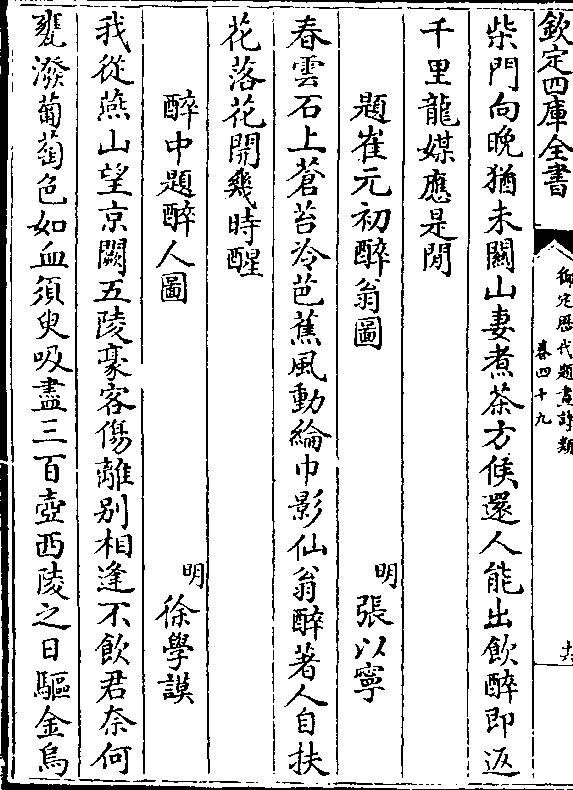 欽定四庫全書
御定歷代題畫詩類
卷四十九
十六
柴門向晚猶未關山妻煮茶方候還人能出飲醉即返
千里龍媒應是閒
題崔元初醉翁圖
明張以寧
春雲石上蒼苔冷芭蕉風動綸巾影仙翁醉著人自扶
花落花開幾時醒
醉中題醉人圖
明徐學謨
我從燕山望京闕五陵豪客傷離别相逢不飲君奈何
甕潑葡萄色如血須臾吸盡三百壺西陵之日驅金烏